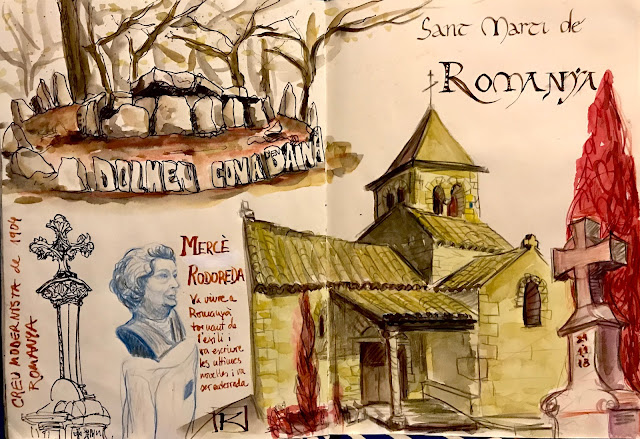 DOLMEN COVA D'EN DAINA
Sant Martí de
ROMANYÀ
CREU MODERNISTA de 1904
ROMANYÀ
MERCÈ
RODOREDA
Va viure a
Romanyà
tornant de
l'exili i
va escriure
les últimes
novel·les i va
ser enterrada
29
11
18